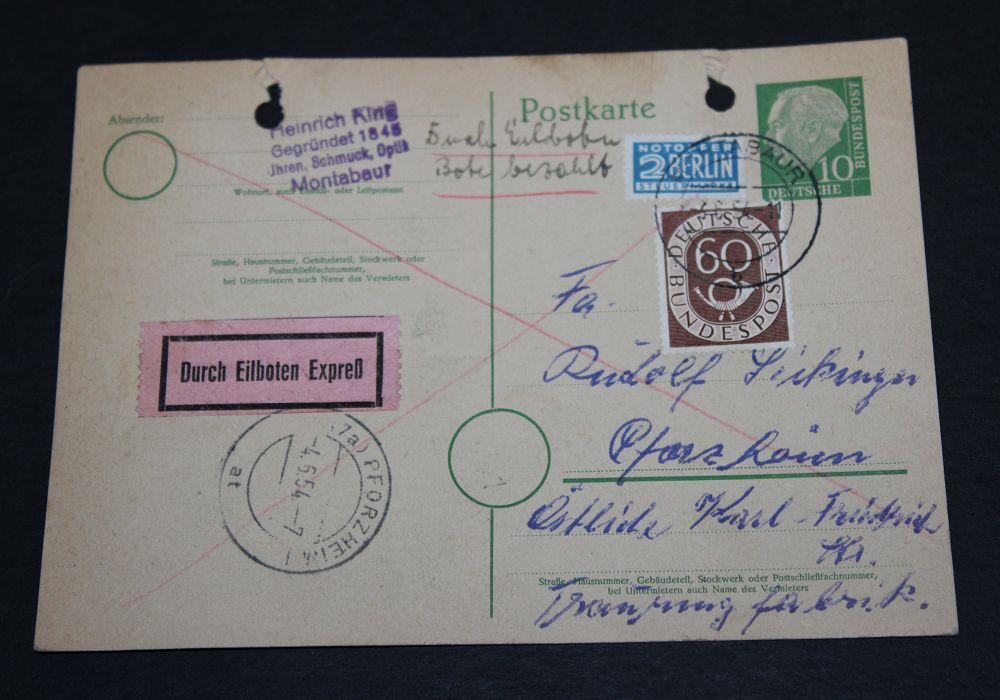 Absender:
Heinrich King
Gegründet 1845
Uhren, Schmuck, Optik
Montabaur
Wohnort, auch Zustell- oder Leitpostamt
Straße, Hausnummer, Gebäudeteil, Stockwerk oder
Postschließfachnummer,
bei Untermietern auch Name des Vermieters
Durch Eilboten Expreß
(17a) PFORZHEIM 1
-4.6.54.-7
at
Postkarte
Durch Eilboten
Bote bezahlt
NOTOPFER
2 BERLIN
STEUERMARKE
MONTABAUR
DEUTSCHE
BUNDESPOST
60
10
DEUTSCHE
BUNDESPOST
Fa.
Rudolf Sickinger
Pforzheim
Östliche Karl-Friedrich
Str.
Straße, Hausnummer, Gebäudeteil, Stockwerk oder Postschließfachnummer,
bei Untermietern auch Name des Vermieters
fabrik.